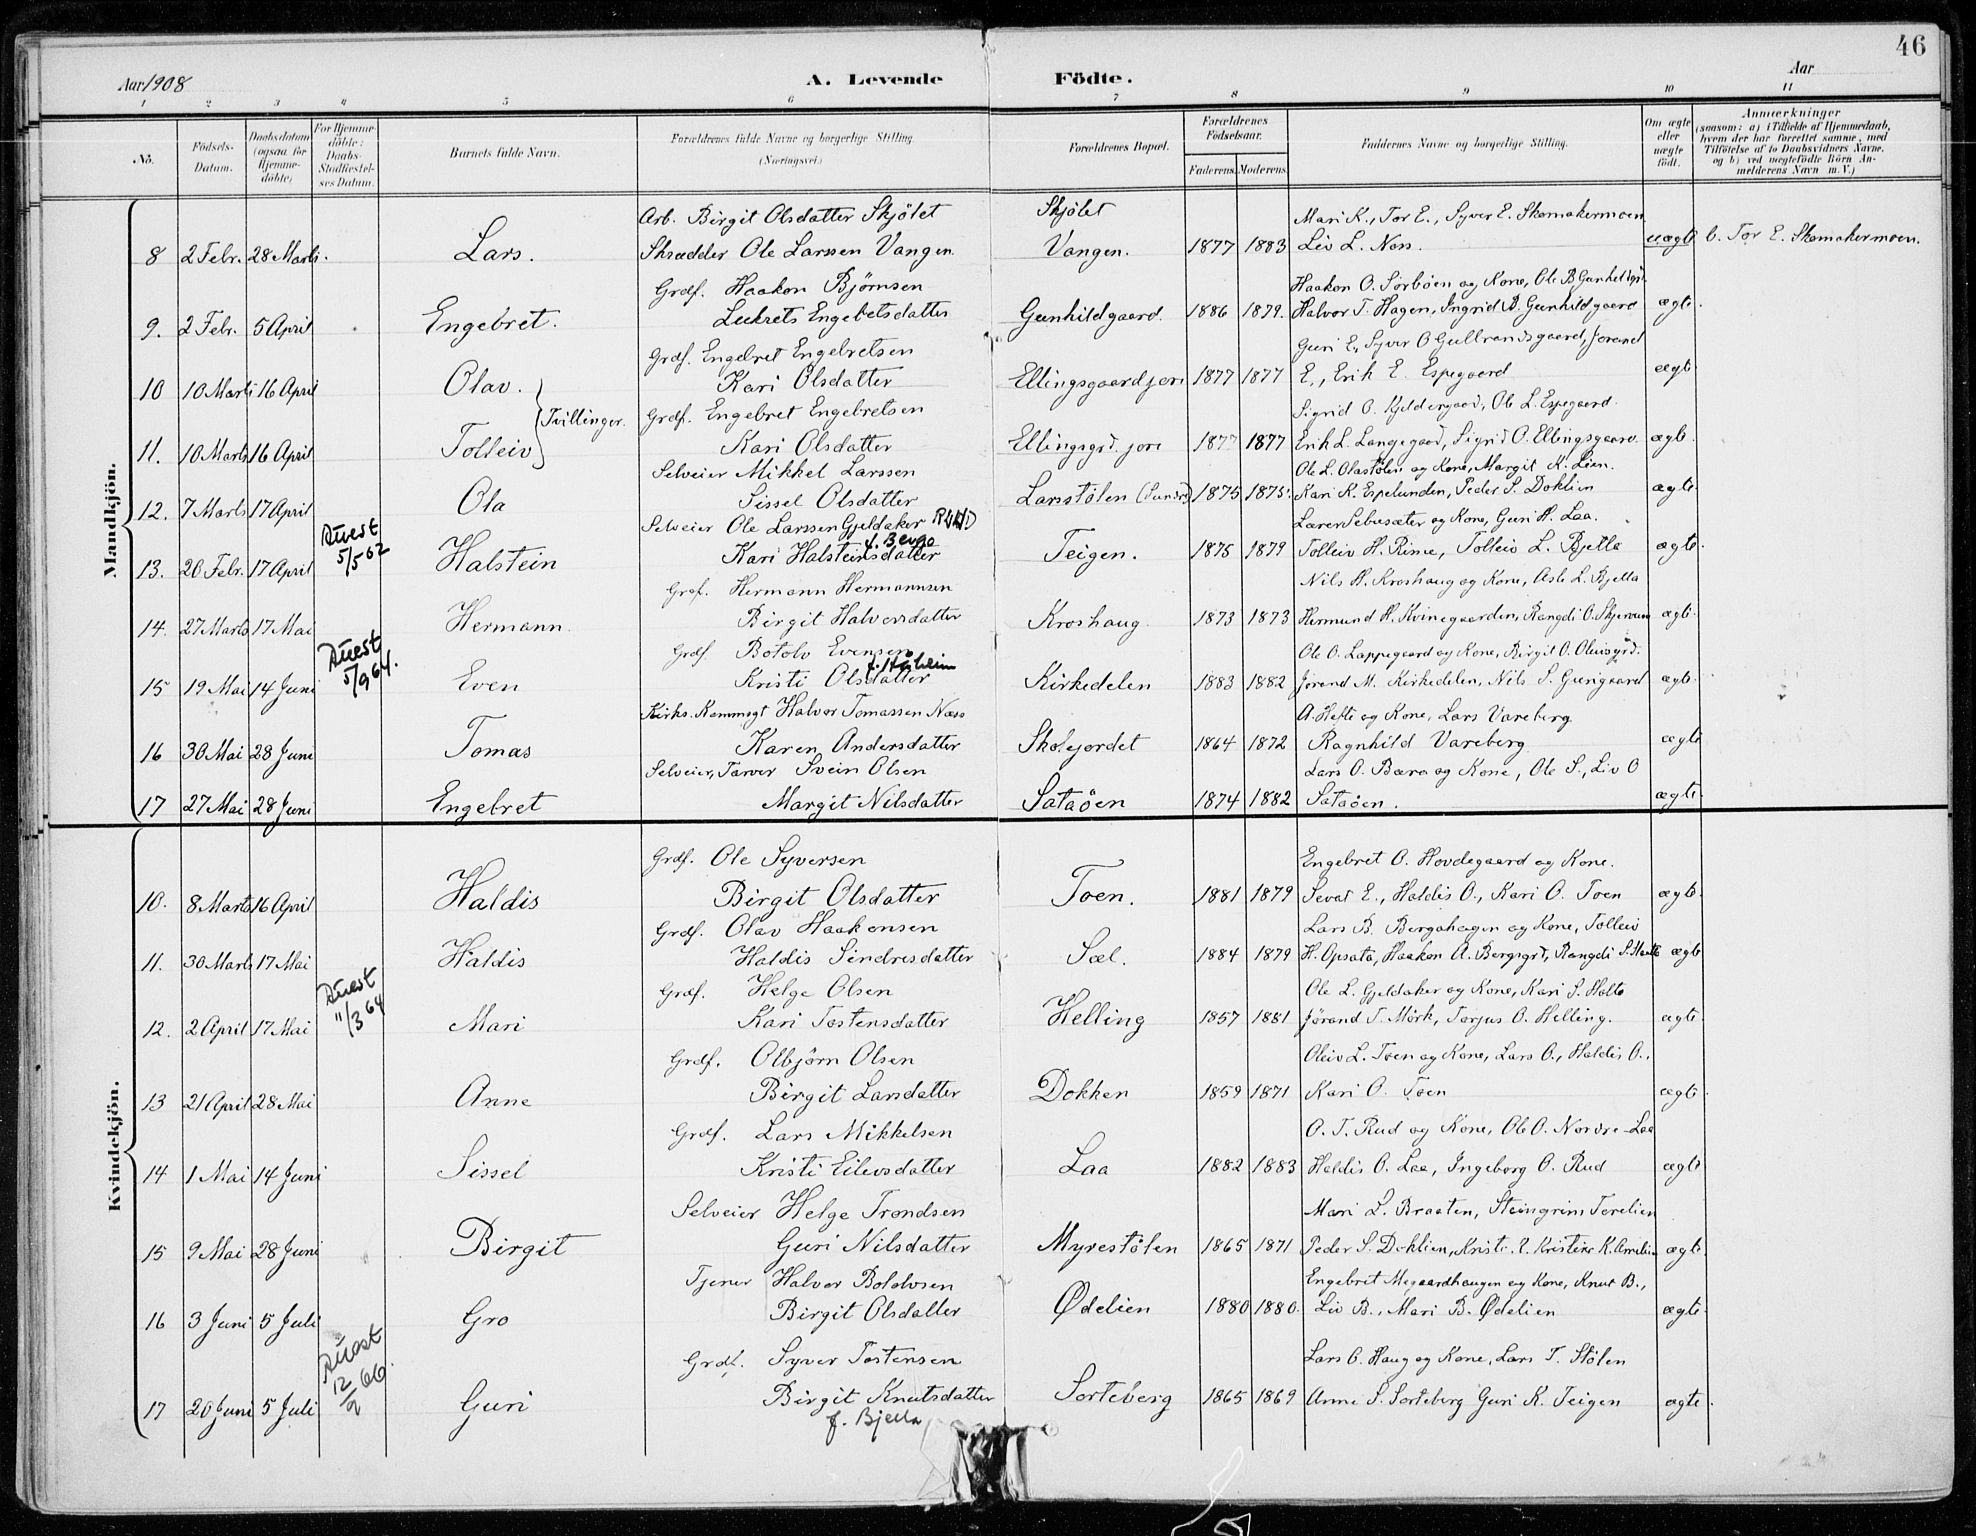 46
Aar 1908 A. Levende Födte. Aar
1 2 3 4 5 6 7 8 9 10 11
No. Födsels-Datum. Daabsdatum (ogsaa for Hjemme-döbte) For Hjemme-döbte: Daabs-Stadfæstel-ses Datum. Barnets fulde Navn. Forældrenes fulde Navne og borgerlige Stilling. (Næringsvei.) Forældrenes Bopæl. Forældrenes Födselsaar. Faderens. Moderens. Faddernes Navne og borgerlige Stilling. Om ægte eller uægte födt. Anmærkninger (saasom: a) i Tilfælde af Hjemmedaab, hvem der har forrettet samme, med Tilföielse af to Daabsvidners Navne, og b) ved uægtefödte Börn An-melderens Navn m. V.)
Mandkjön.
Arb. Birgit Olsdatter Skjölet Skjölet Mari K., Tor E., Syver E. Skomakermoen
8 2 Febr. 28 Marts. Lars. Skrædder Ole Larssen Vangen Vangen. 1877 1883 Liv L. Næss. uægte b. Tor E. Skomakermoen.
Grdf. Haakon Björnsen Haakon O. Sorböen og Kone, Ole B Gunhildgrd.
9. 2 Febr. 5 April Engebret. Lukrets Engebretsdatter Gunhildgaard. 1886 1879. Halvor T. Hagen, Ingrid B. Gunhildgaard ægte.
Grdf. Engebret Engebretsen Guri E., Syver O Gulbrandsgaard, Jorand
10 10 Marts 16 April Olav. Kari Olsdatter Ellingsgaardjori 1877 1877 E., Erik E. Espegaard ægte
Tvillinger. Grdf. Engebret Engebretsen Sigrid O. Kjeldergaard, Ole L. Espegaard.
11. 10 Marts 16 April Tolleiv Kari Olsdatter Ellingsgrd. jori 1877 1877 Erik L. Langegaard, Sigrid O. Ellingsgaard. ægte.
Selveier Mikkel Larssen Ole L. Olastölen og Kone, Margit K. Lien.
12. 7 Marts 17 April Ola Sissel Olsdatter Larsstölen (Sundre) 1875 1875. Kari K. Espelunden, Peder S. Doklien ægte
Selveier Ole Larssen Gjeldaker RUUD Lærer Sebusæter og Kone, Guri H. Laa.
13. 20 Febr. 17 April Attest 5/5 62 Halstein Kari Halsteinsdatter f. Berge Teigen. 1875 1879 Tolleiv H. Rime, Tolleiv L. Bjella ægte.
Grdf. Hermann Hermannsen Nils H. Kroshaug og Kone, Asle L. Bjella
14. 27 Marts 17 Mai Hermann. Birgit Halvorsdatter Kroshaug. 1873 1873 Hermund H. Kvinnegaarden, Rangdi O. Skjervum ægte.
Grdf. Botolv Evensen Ole O. Lappegaard og Kone, Birgit O. Oleivsgrd.
15 19 Mai 14 Juni Attest 5/9 64. Even Kristi Olsdatter f. Hoheim Kirkedelen 1883 1882 Jorand M. Kirkedelen, Nils S. Gurigaard ægte.
Kirks. Kammsgt Halvor Tomassen Næss A. Hefte og Kone, Lars Vareberg
16 30 Mai 28 Juni Tomas Karen Andersdatter Skolejordet 1864 1872 Ragnhild Vareberg ægte
Selveier, Farver Svein Olsen Lars O. Bæra og Kone, Ole S., Liv O
17 27 Mai 28 Juni Engebret Margit Nilsdatter Sataöen 1874 1882 Sataöen. ægte.
Kvindekjön.
Grdf. Ole Syversen Engebret O. Hovdegaard og Kone.
10. 8 Marts 16 April Haldis Birgit Olsdatter Toen. 1881 1879 Sevat E., Haldis O., Kari O. Toen ægte.
Grdf. Olav Haakonsen Lars B. Bergahagen og Kone, Tolleiv
11. 30 Marts 17 Mai Haldis Haldis Sindresdatter Sæl. 1884 1879 H. Opsata, Haakon A. Bergsgrd, Rangdi S. Holte ægte
Grdf. Helge Olsen Ole L. Gjeldaker og Kone, Kari S. Holte
12. 2 April 17 Mai Attest 11/3 64 Mari Kari Tostensdatter Helling 1857 1881 Jörand T. Mörk, Torjus O. Helling. ægte.
Grdf. Olbjörn Olsen Oleiv L. Toen og Kone, Lars O., Haldis O.,
13 21 April 28 Mai Anne Birgit Larsdatter Dokken 1859 1871 Kari O. Toen ægte
Grdf. Lars Mikkelsen O. T. Rud og Kone, Ole O. Nordre-Laa
14 1 Mai 14 Juni Sissel Kristi Eilevsdatter Laa 1882 1883 Haldis O. Laa, Ingeborg O. Rud ægte
Selveier Helge Trondsen Mari L. Braaten, Steingrim Torelien
15 9 Mai 28 Juni Birgit Guri Nilsdatter Myrestölen 1865 1871 Peder S. Doklien, Kristi E. Kristine K. ægte.
Tjener Halvor Botolvsen Engebret Megaardhaugen og Kone, Knut B.,
16 3 Juni 5 Juli Gro Birgit Olsdatter Ødelien 1880 1880. Liv B., Mari B. Ødelien ægte.
Grdf. Syver Tostensen Lars O. Haug og Kone, Lars T. Stölen
17 20 Juni 5 Juli Attest 12/2 66. Guri Birgit Knutsdatter Sorteberg 1865 1869 Anne S. Sorteberg Guri K. Teigen ægte.
f. Bjella